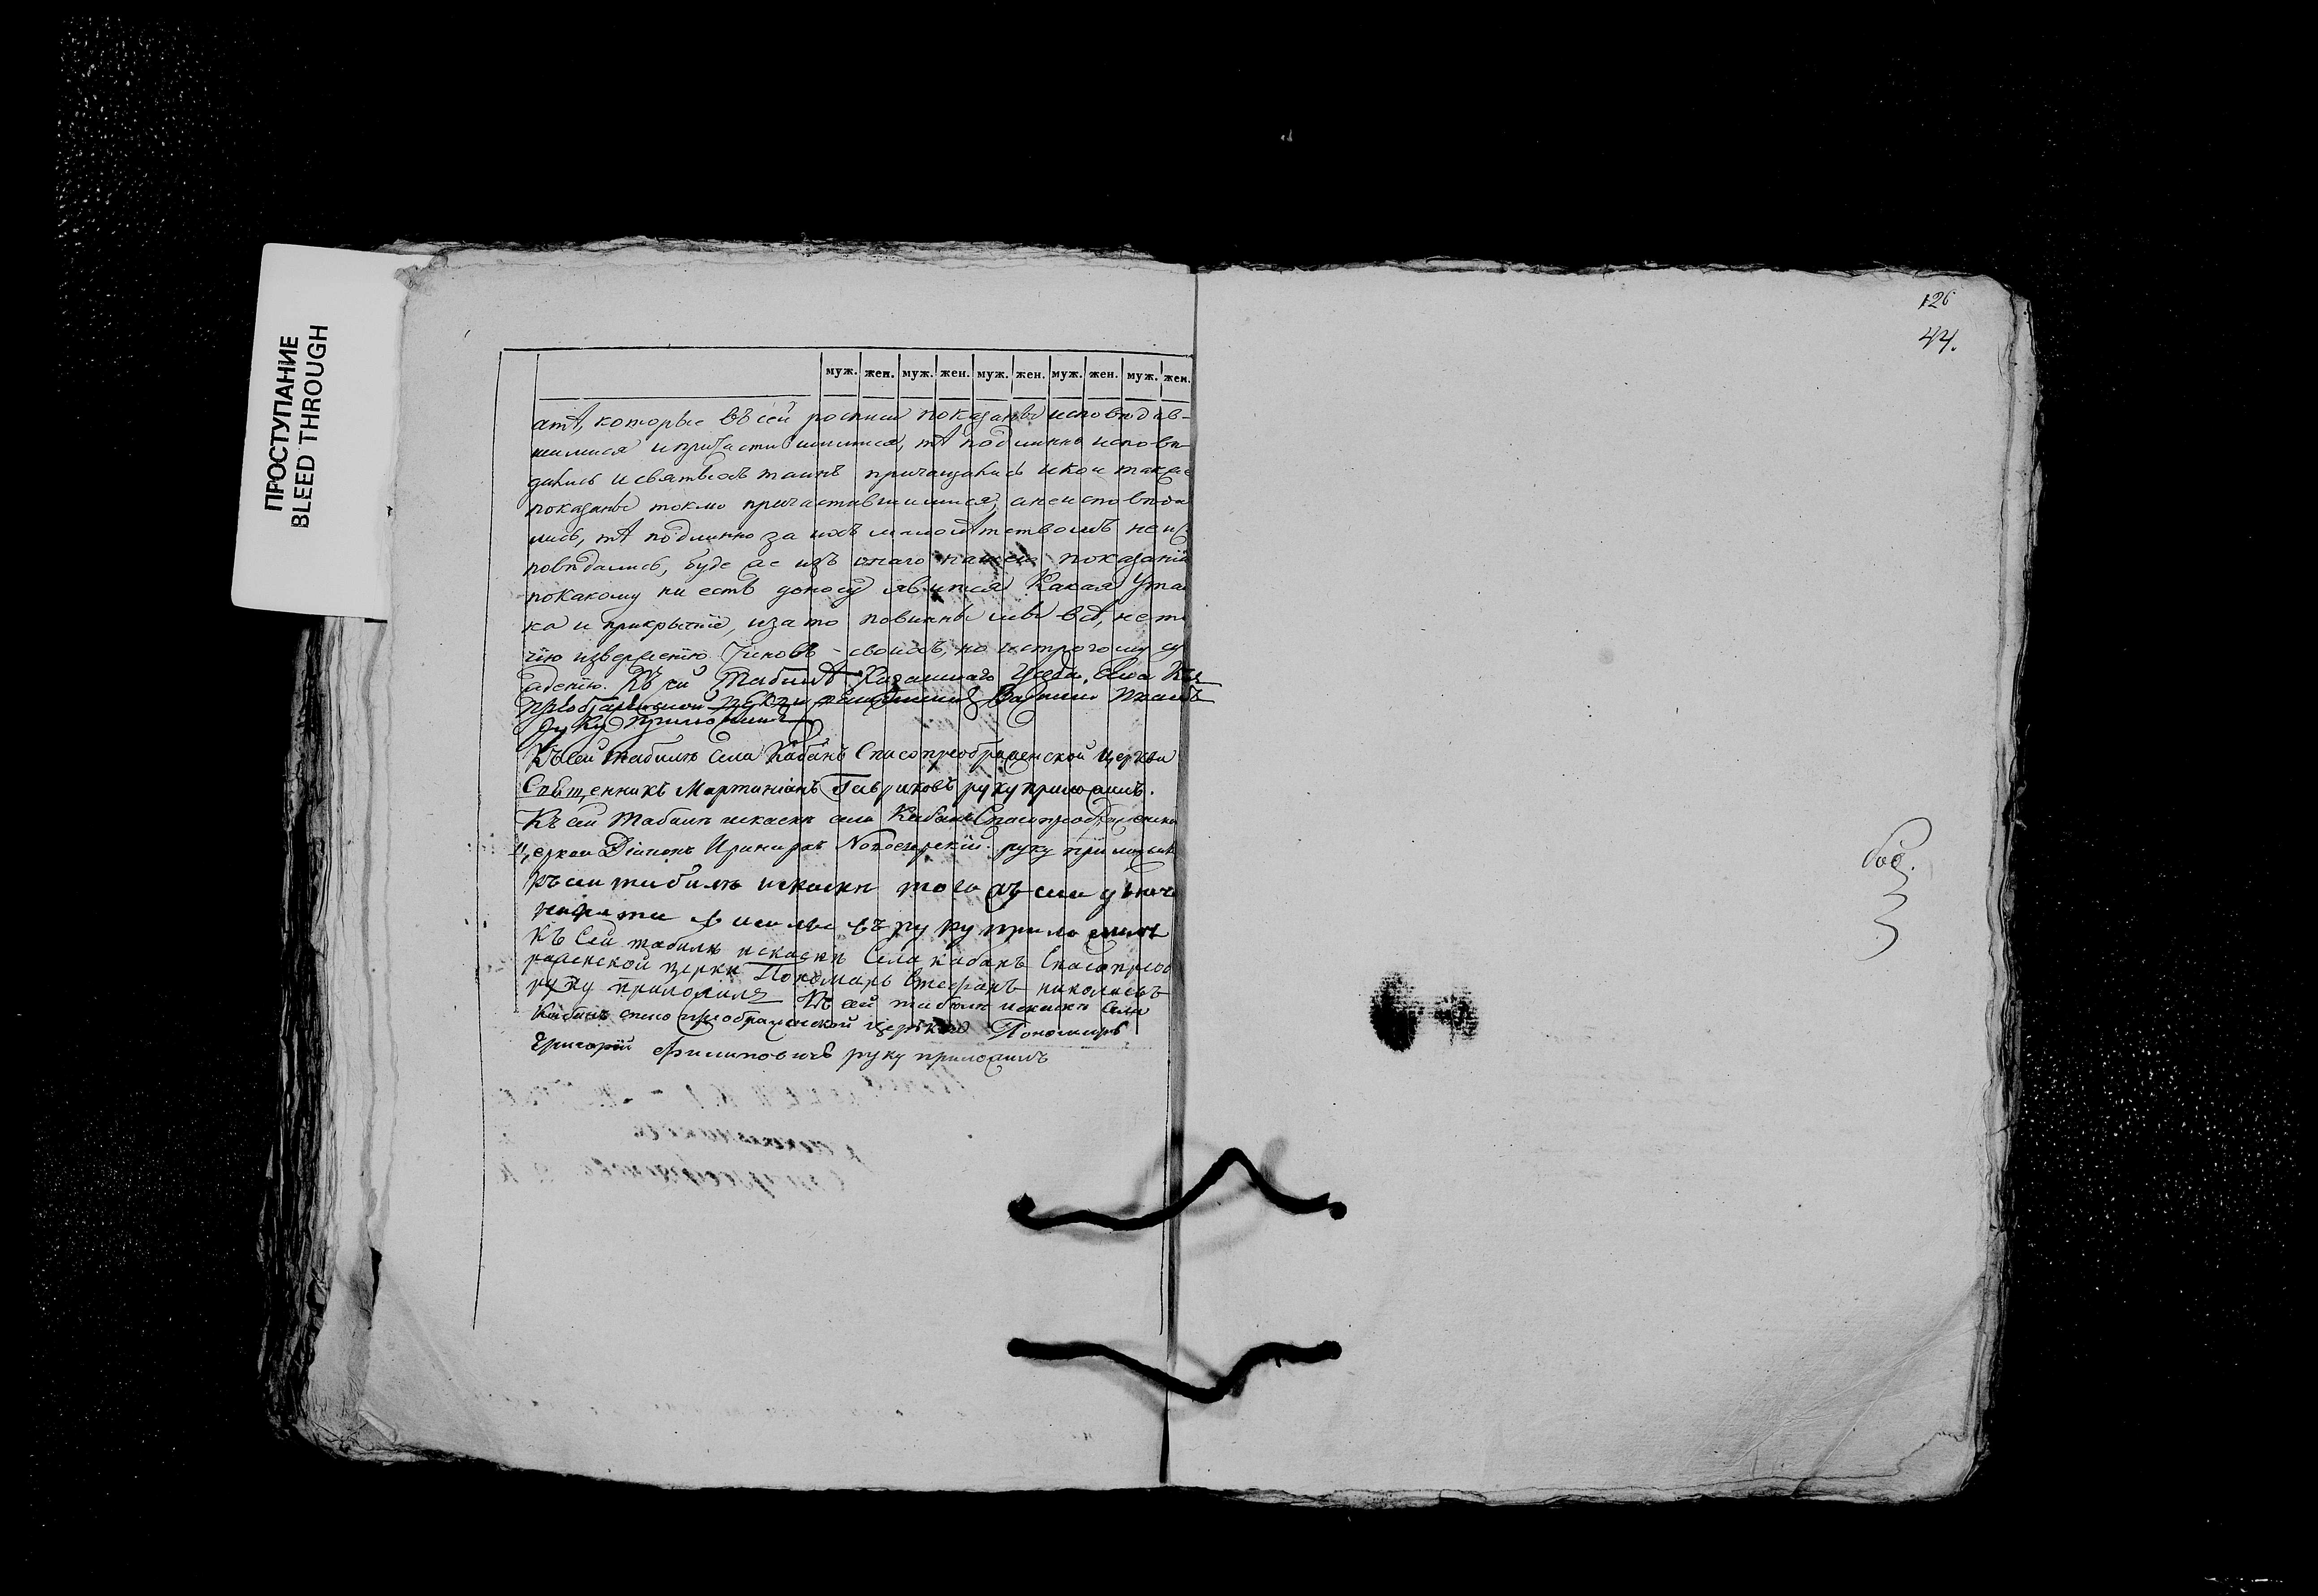 ПРОСТУПАНИЕ
BLEED THROUGH
126
44.
муж. жен. муж. жен. муж. жен. муж. жен. муж. жен.
которые въ сей росписи показаны исповѣдав-
шимися и причастившимися, тѣ подлинно исповѣ
дались и святыхъ таинъ причащались и кои также
показаны токмо причастившимися, а неисповѣда
лись, тѣ подлинно за ихъ малолѣтствомъ неис
повѣдались, буде же изъ онаго нашего показанія
по какому ни есть доносу явится какая ута
ка и прикрытіе, и за то повинны мы всѣ, не т
чію изверженію чиновъ своихъ, но и строгому су
жденію. Къ сей табилѣ уезда села
руку приложилъ
Къ сей табилѣ села Кабанъ Спасопреображенской церкви
Священникъ Мартиніанъ Гавриловъ руку приложилъ.
Къ сей табилѣ искаскѣ села Кабанъ Спасопреображенско
церкви Діаконъ руку приложилъ
къ сей табилѣ искаскѣ того жъ села дьяч
въ руку приложилъ
Къ сей табилѣ искаскѣ села кабанъ Спасопрео
раженской церкви Пономарь Стефанъ николаевъ
руку приложилъ Къ сей табилѣ искаскѣ села
Кабанъ спасо преображенской церкви Пономарь
Григорій Филиповичь руку приложилъ